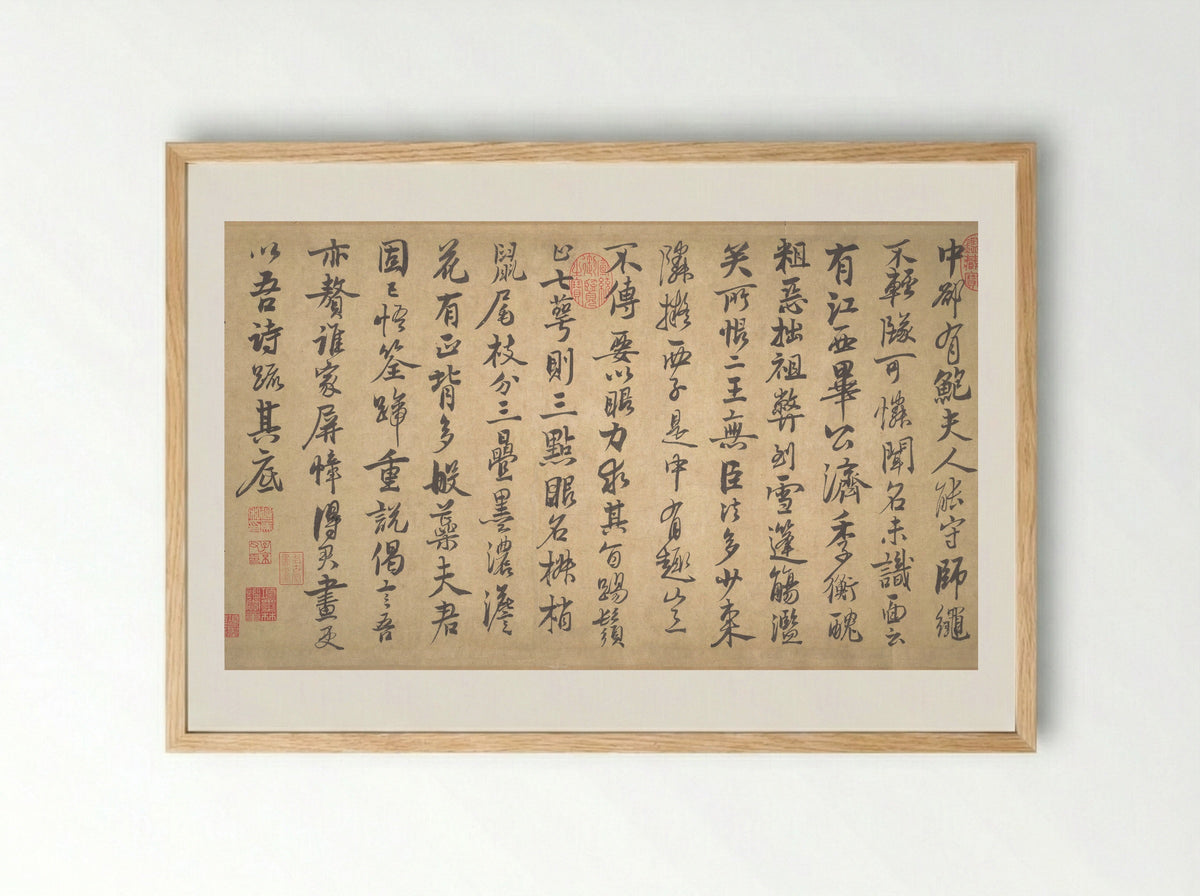 中郤有鮑夫人能守師繩
不輕墜可憐聞名未識面云
有江西畢公濟季衡醜
粗惡拙祖弊到雪蓬觴濫
矣所恨二王無臣法多少東
鄰擬西子是中有趣豈
不傳要以眼力求其旨踢鬚
止七萼則三點眼名椒梢
鼠尾枝分三疊墨濃澹
花有正背多般蘂夫君
固已悟筌蹄重説偈言吾
亦贅誰家屏幛得君畫更
以吾詩疏其底